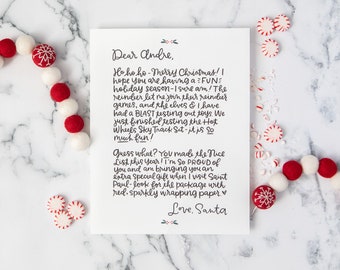 Dear Andre,
Ho ho ho - Merry Christmas! I
hope you are having a FUN
holiday season - I sure am! The
reindeer let me join their reindeer
games, and the elves & I have
had a BLAST testing out toys. We
just finished testing the Hot
Wheels Sky Track Set - it is SO
much fun!
Guess what? You made the Nice
List this year! I'm so PROUD OF
YOU and am bringing you an
extra special gift when I visit Saint
Paul - look for the package with
red, sparkly wrapping paper ♥
Love, Santa